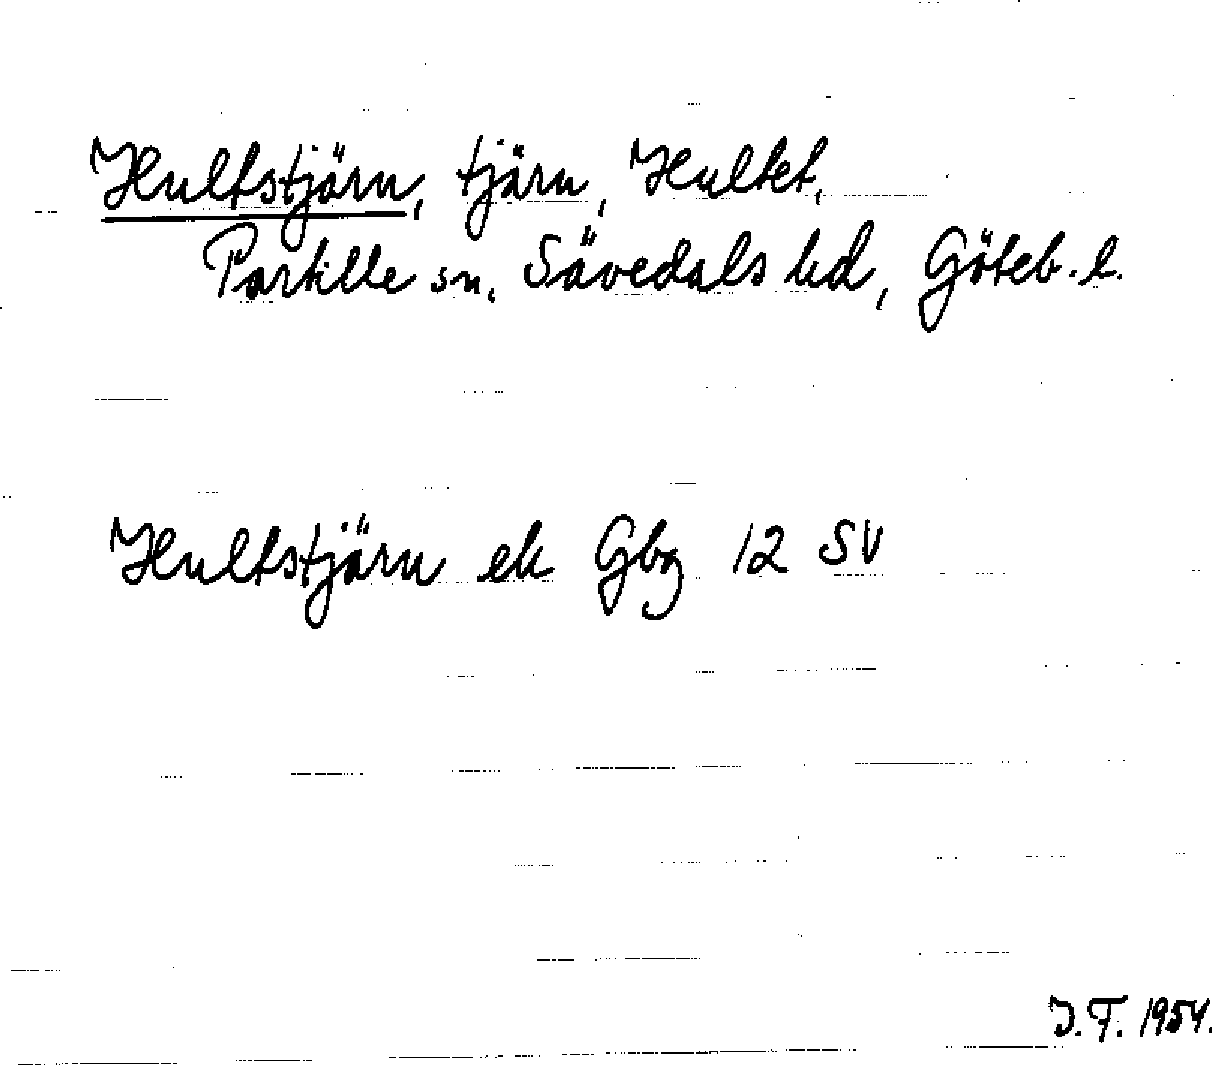 Hultstjärn, tjärn, Hultet,
Partille sn, Sävedals hd, Göteb. l.
Hultstjärn ek Gbg 12 SV
J.F. 1954.